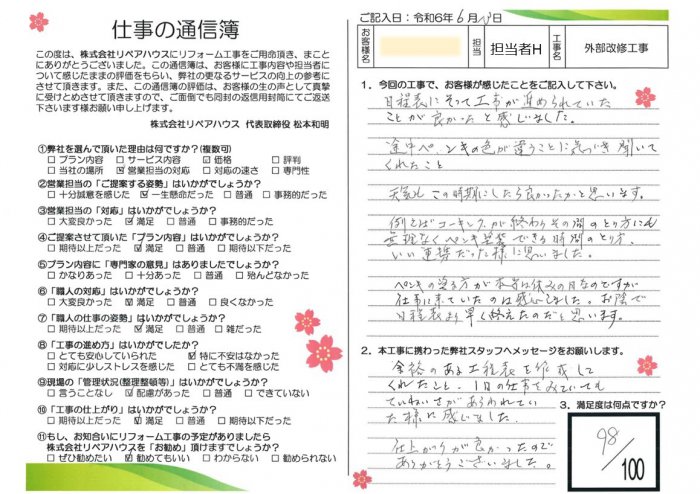 仕事の通信簿
この度は、株式会社リペアハウスにリフォーム工事をご用命頂き、まこと
にありがとうございました。この通信簿は、お客様に工事内容や担当者に
ついて感じたままの評価をもらい、弊社の更なるサービスの向上の参考に
させて頂きます。また、この通信簿の評価は、お客様の生の声として真摯
に受けとめさせて頂きますので、ご面倒でも同封の返信用封筒にてご返送
下さいます様お願い申し上げます。
株式会社リペアハウス 代表取締役 松本和明
①弊社を選んで頂いた理由は何ですか?(複数可)
□ プラン内容 □ サービス内容 ☑ 価格 □ 評判
□ 当社の場所 ☑ 営業担当の対応 □ 対応の速さ □ 専門性
②営業担当の「ご提案する姿勢」はいかがでしょうか?
□ 十分誠意を感じた ☑ 一生懸命だった □ 普通 □ 事務的だった
③営業担当の「対応」はいかがでしょうか?
□ 大変良かった ☑ 満足 □ 普通 □ 事務的だった
④ご提案させて頂いた「プラン内容」はいかがでしょうか?
□ 期待以上だった ☑ 満足 □ 普通 □ 期待以下だった
⑤プラン内容に「専門家の意見」はありましたでしょうか?
□ かなりあった □ 十分あった □ 普通 □ 殆んどなかった
⑥「職人の対応」はいかがでしょうか?
□ 大変良かった ☑ 満足 □ 普通 □ 良くなかった
⑦「職人の仕事の姿勢」はいかがでしょうか?
□ 期待以上だった ☑ 満足 □ 普通 □ 雑だった
⑧「工事の進め方」はいかがでしたか?
□ とても安心していられた ☑ 特に不安はなかった
□ 対応に少しストレスを感じた □ とても不満を感じた
⑨現場の「管理状況(整理整頓等)」はいかがでしょうか?
□ 言うことなし ☑ 配慮があった □ 普通 □ できていない
⑩「工事の仕上がり」はいかがでしょうか?
□ 期待以上だった ☑ 満足 □ 普通 □ 期待以下だった
⑪もし、お知合いにリフォーム工事の予定がありましたら
株式会社リペアハウスを「お勧め」頂けますでしょうか?
□ ぜひ勧めたい ☑ 勧めてもいい □ わからない □ 勧められない
ご記入日:令和6年6月 日
お客様名 担当 担当者H 工事名 外部改修工事
1.今回の工事で、お客様が感じたことをご記入して下さい。
日程表にそって工事が進められていた
ことが良かったと感じました。
途中ペンキの色が違うことに気づき聞いて
くれたこと
天気も この時期にしたら良かったかと思います。
例えばコーキングが終わりその間のとり方にも
無理なくペンキ塗装できる時間のとり方、
いい だった様に思いました。
ペンキの塗る方が本当は休みの日なのですが
仕事に来ていたのは感心しました。お陰で
日程表より早く終えたのだと思います。
2.本工事に携わった弊社スタッフへメッセージをお願いします。
余裕のある工程表を作成して
くれたこと、1日の仕事をみていても
ていねいさがあらわれてい
た様に感じました。
仕上がりが良かったので
ありがとうございました。
3.満足度は何点ですか?
98/100